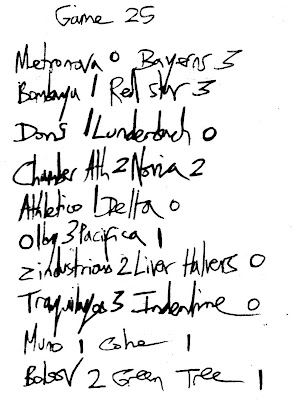 Game 25
Metronova 0 Bayerns 3
Bombayu 1 Red star 3
Dons 1 Lunderbach 0
Chamber Ath 2 Noria 2
Athletico 1 Delta 0
3 Pacifica 1
Zindustrious 2 Liver Halvers 0
3 0
Muro 1 1
2 Green Tree 1